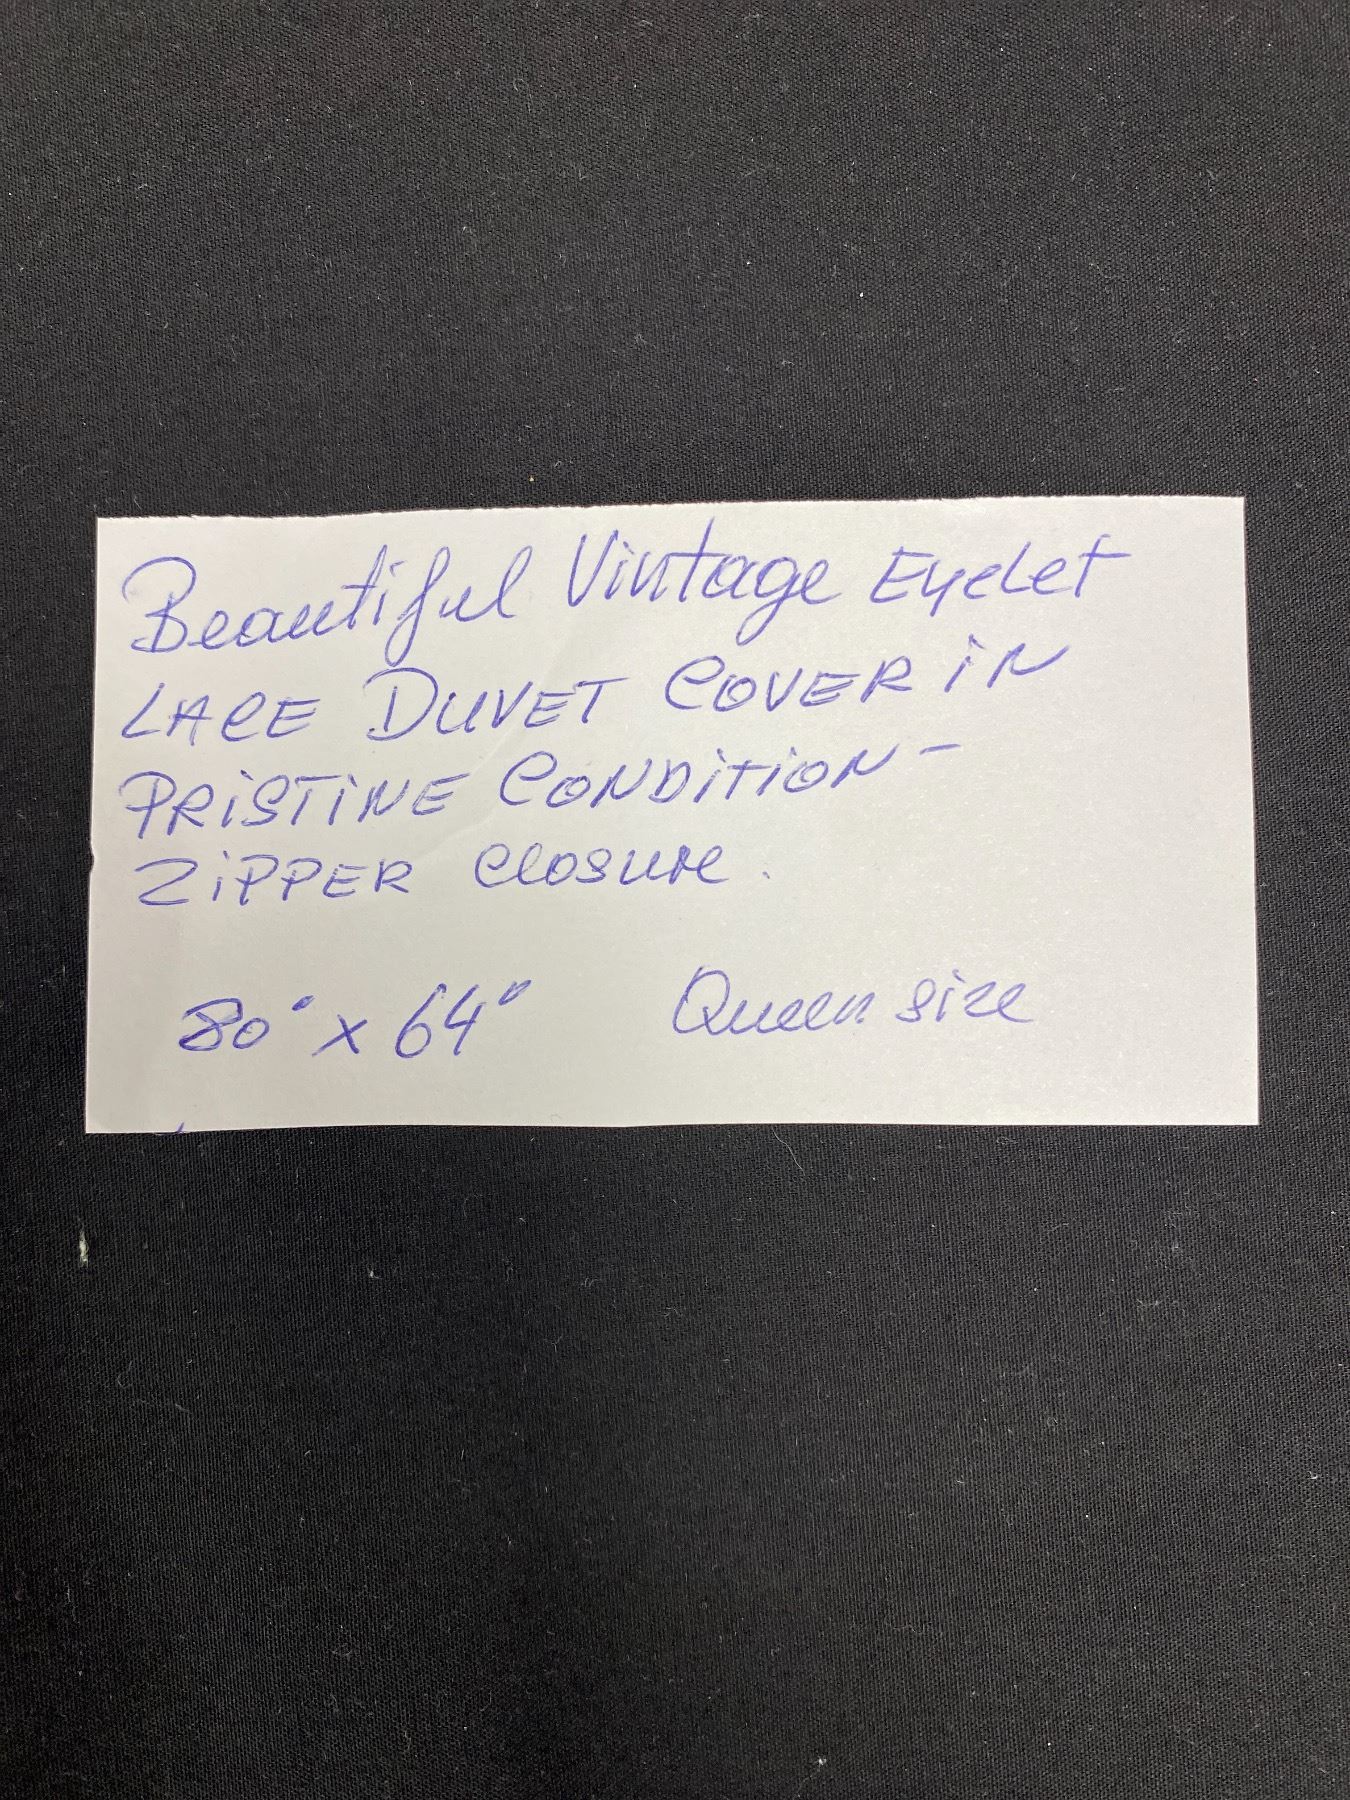 Beautiful Vintage Eyelet
LACE DUVET COVER iN
PRiSTiNE CONDiTiON -
ZiPPER Closure.
80" x 64" Queen size